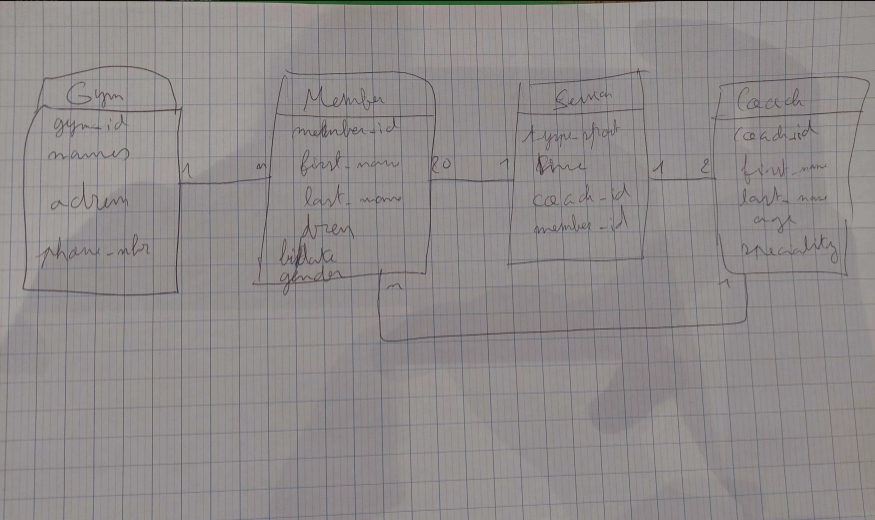 Gym
gym_id
names
adress
phone-nbr
1
n
Member
member_id
first_name
last_name
bidate
gender
20
1
n
type_sport
time
coach_id
member_id
1
2
Coach
coach_id
first_name
last_name
age
speciality
1